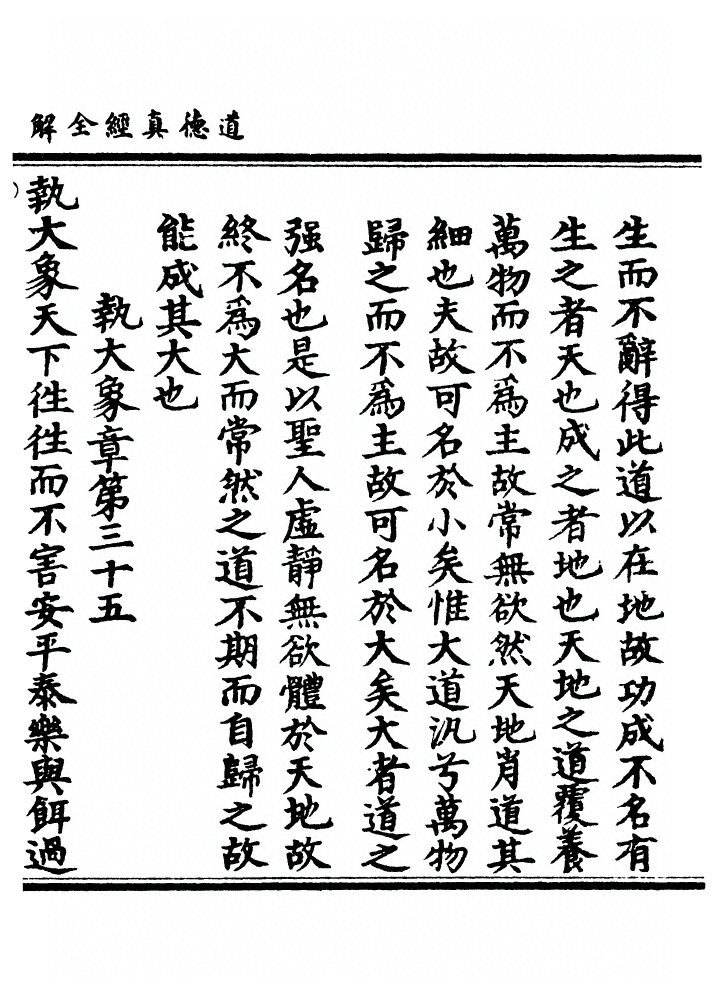 道德真經全解
生而不辭得此道以在地故功成不名有
生之者天也成之者地也天地之道覆養
萬物而不爲主故常無欲然天地肖道其
細也夫故可名於小矣惟大道汎兮萬物
歸之而不爲主故可名於大矣大者道之
强名也是以聖人虛靜無欲體於天地故
終不爲大而常然之道不期而自歸之故
能成其大也
執大象章第三十五
執大象天下徃徃而不害安平泰樂與餌過